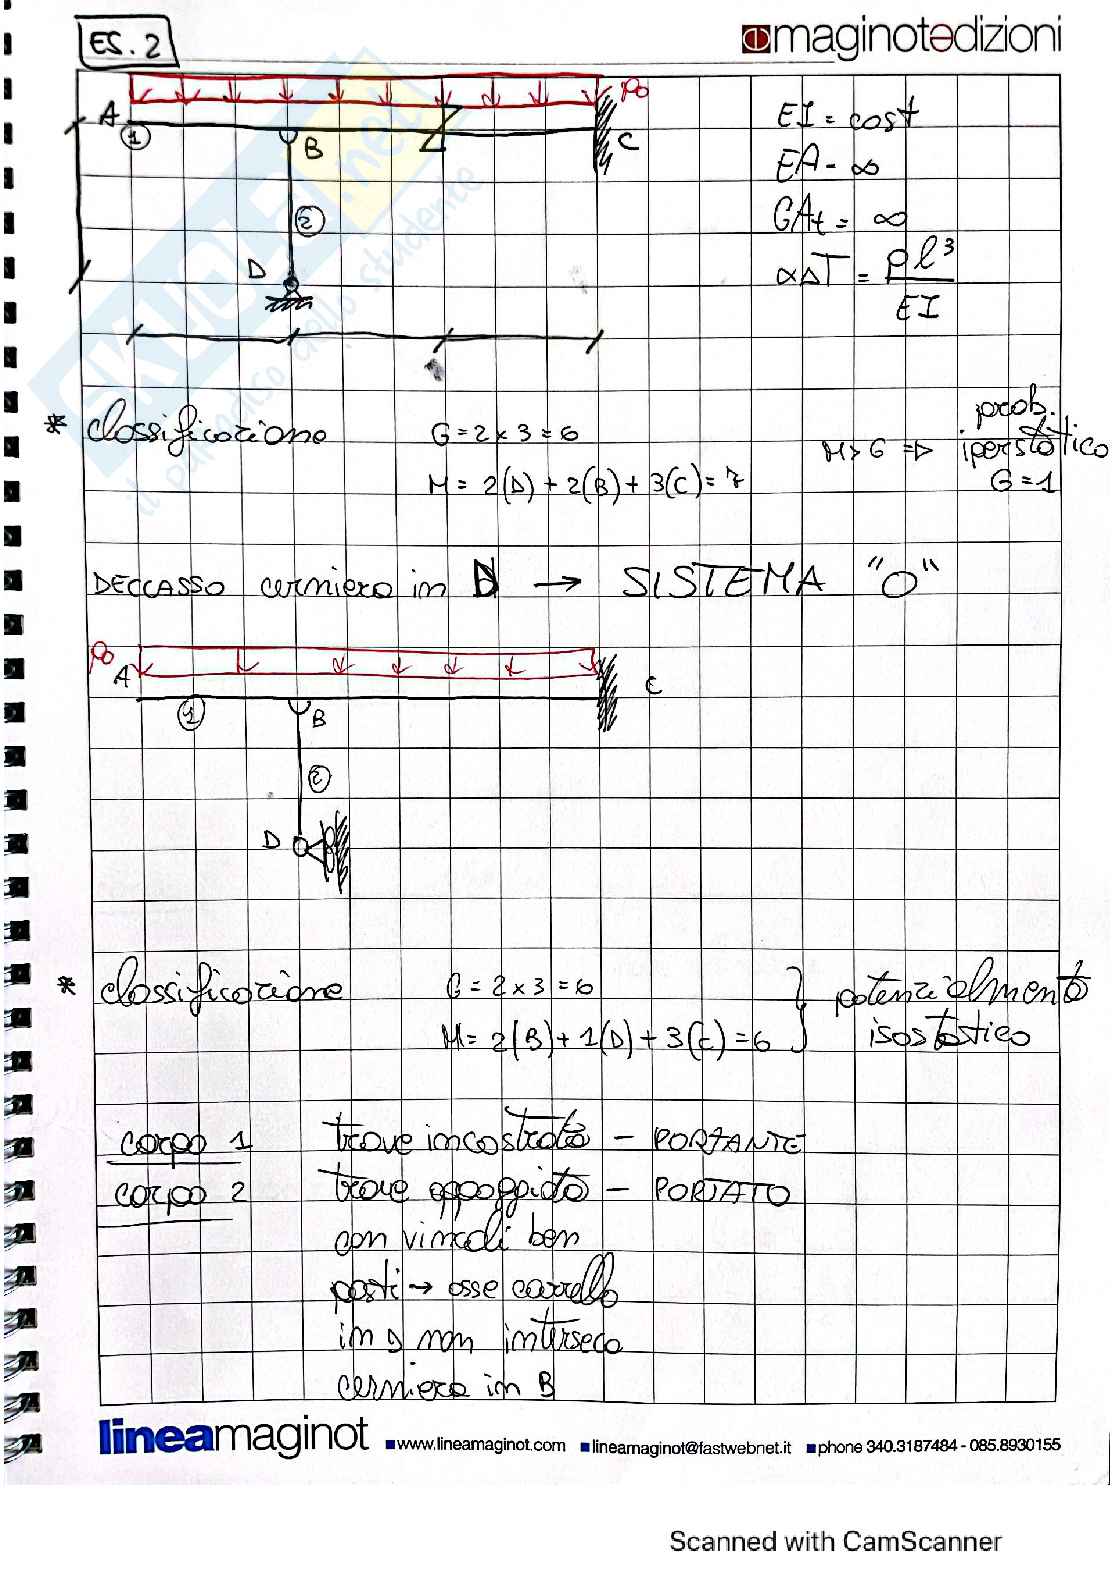 ES. 2
maginotedizioni
A
1
B
C
po
2
D
EI = cost
EA - ∞
GAt = ∞
α∆T = pl³ / EI
* classificazione
G = 2 x 3 = 6
M = 2(D) + 2(B) + 3(C) = 7
M > G ⇒
prob.
iperstatico
G = 1
DECLASSO cerniera in D → SISTEMA "0"
po
A
1
B
C
2
D
* classificazione
G = 2 x 3 = 6
M = 2(B) + 1(D) + 3(C) = 6
potenzialmente
isostatico
corpo 1 trave incastrata - PORTANTE
corpo 2 trave appoggiata - PORTATO
con vincoli ben
posti → asse carrello
in D non interseca
cerniera in B
lineamaginot www.lineamaginot.com lineamaginot@fastwebnet.it phone 340.3187484 - 085.8930155
SKUOLA.net
il paradiso dello studente
Scanned with CamScanner